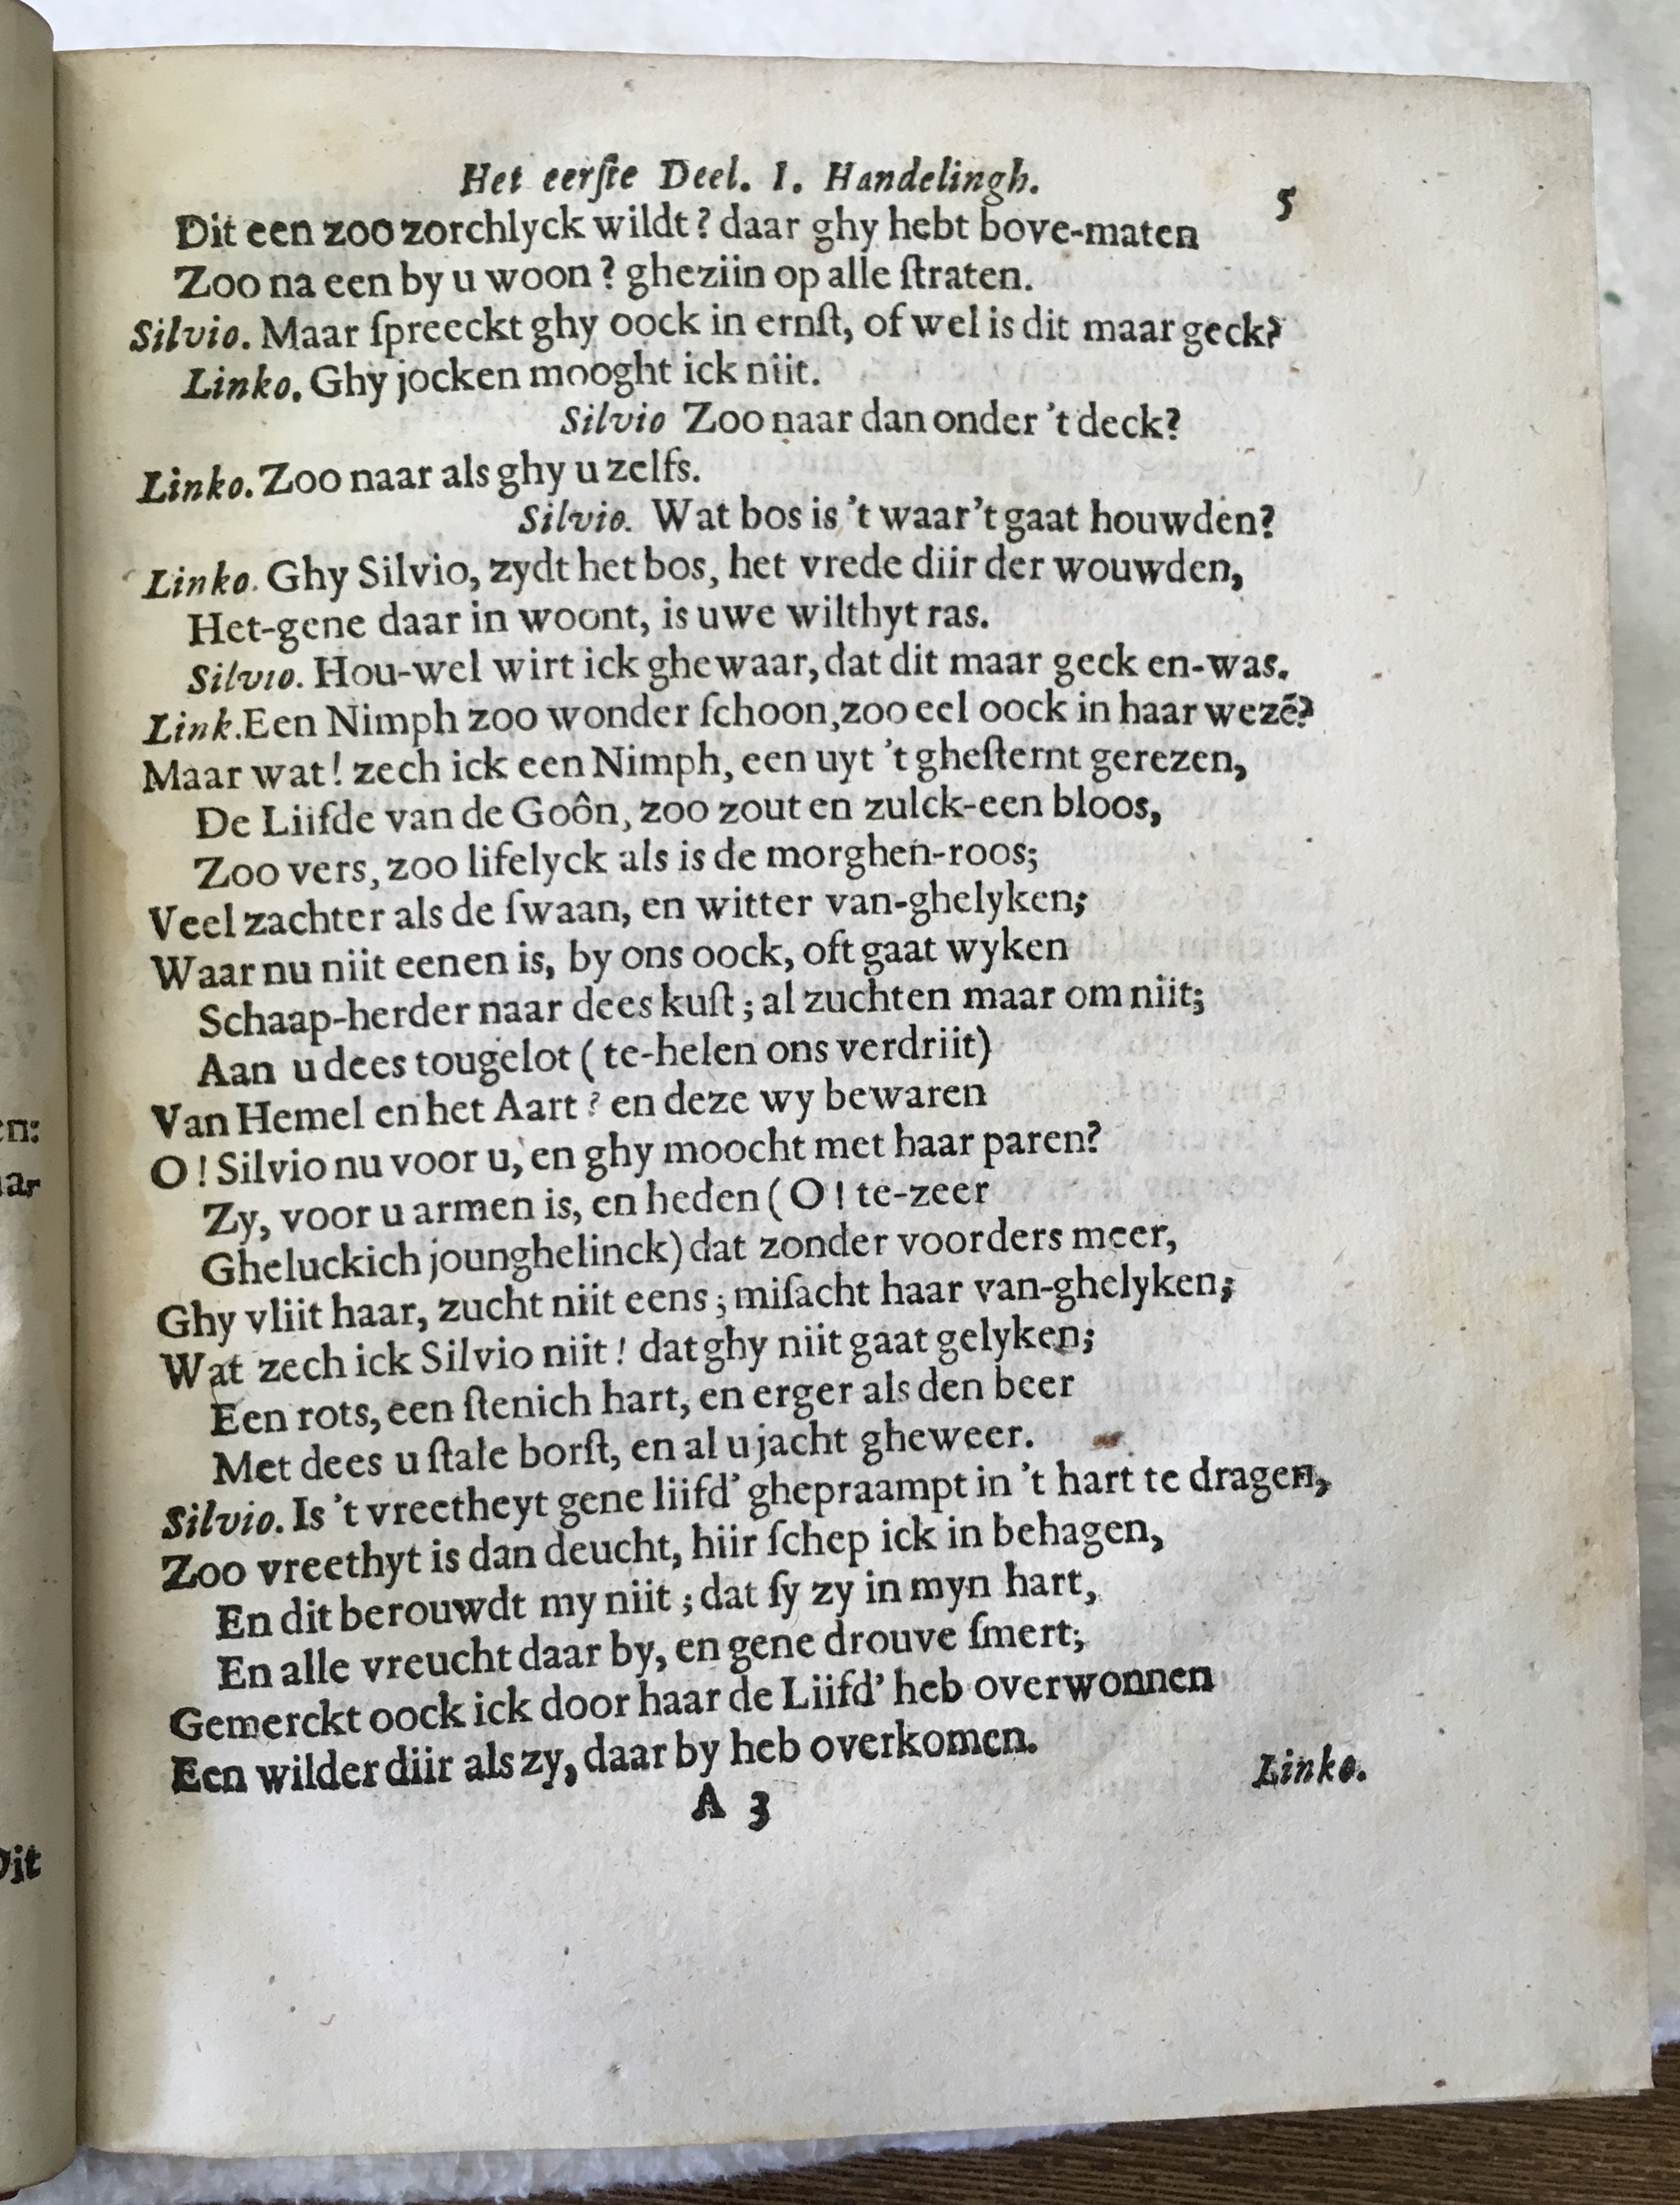 Het eerſte Deel. I. Handelingh.
5
Dit een zoo zorchlyck wildt? daar ghy hebt bove-maten
Zoo na een by u woon? gheziin op alle ſtraten.
Silvio. Maar ſpreeckt ghy oock in ernſt, of wel is dit maar geck?
Linko. Ghy jocken mooght ick niit.
Silvio Zoo naar dan onder 't deck?
Linko. Zoo naar als ghy u zelfs.
Silvio. Wat bos is 't waar 't gaat houwden?
Linko. Ghy Silvio, zydt het bos, het vrede diir der wouwden,
Het-gene daar in woont, is uwe wilthyt ras.
Silvio. Hou-wel wirt ick ghewaar, dat dit maar geck en-was.
Link. Een Nimph zoo wonder ſchoon, zoo eel oock in haar wezē?
Maar wat! zech ick een Nimph, een uyt 't gheſternt gerezen,
De Liifde van de Goôn, zoo zout en zulck-een bloos,
Zoo vers, zoo lifelyck als is de morghen-roos;
Veel zachter als de ſwaan, en witter van-ghelyken;
Waar nu niit eenen is, by ons oock, oft gaat wyken
Schaap-herder naar dees kuſt; al zuchten maar om niit;
Aan u dees tougelot (te-helen ons verdriit)
Van Hemel en het Aart? en deze wy bewaren
O! Silvio nu voor u, en ghy moocht met haar paren?
Zy, voor u armen is, en heden (O! te-zeer
Gheluckich jounghelinck) dat zonder voorders meer,
Ghy vliit haar, zucht niit eens; miſacht haar van-ghelyken;
Wat zech ick Silvio niit! dat ghy niit gaat gelyken;
Een rots, een ſtenich hart, en erger als den beer
Met dees u ſtale borſt, en al u jacht gheweer.
Silvio. Is 't vreetheyt gene liifd' ghepraampt in 't hart te dragen,
Zoo vreethyt is dan deucht, hiir ſchep ick in behagen,
En dit berouwdt my niit; dat ſy zy in myn hart,
En alle vreucht daar by, en gene drouve ſmert;
Gemerckt oock ick door haar de Liifd' heb overwonnen
Een wilder diir als zy, daar by heb overkomen.
A 3
Linko.
en:
ar
Dit